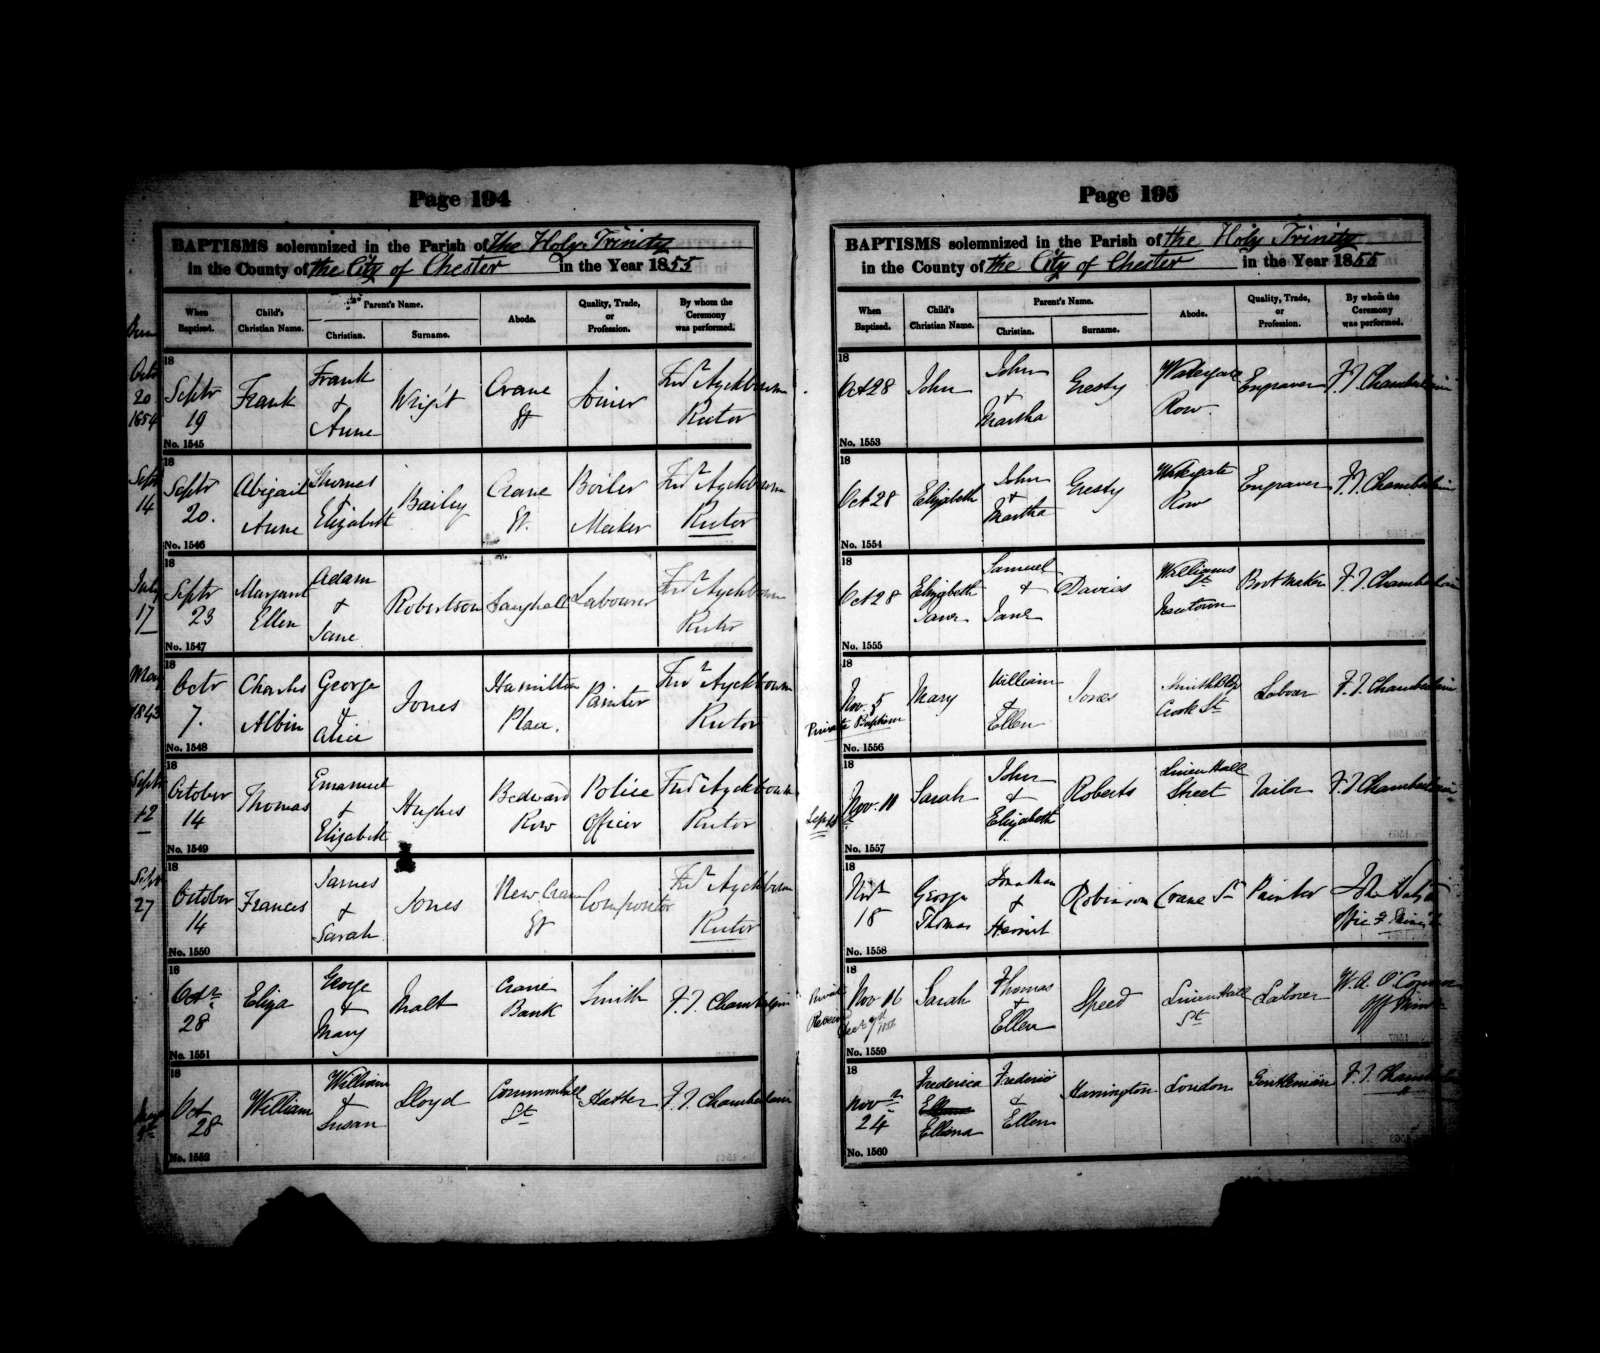 Page 194
BAPTISMS solemnized in the Parish of The Holy Trinity
in the County of the City of Chester in the Year 1855
When Baptised. Child's Christian Name. Parent's Name. Christian. Surname. Abode. Quality, Trade, or Profession. By whom the Ceremony was performed.
Octr 20 1854
18 Septr 19 Frank Frank & Anne Wright Crane St Joiner Fredr Ayckbowm Rector
No. 1545
Septr 14
18 Septr 20. Abigail Anne Thomas & Elizabeth Bailey Crane St. Boiler Maker Fredr Ayckbowm Rector
No. 1546
July 17
18 Septr 23 Margaret Ellen Adam & Jane Robertson Saughall Labourer Fredr Ayckbowm Rector
No. 1547
May 1843
18 Octr 7. Charles Albin George & Alice Jones Hamilton Place. Painter Fredr Ayckbowm Rector
No. 1548
Septr 12
18 October 14 Thomas Emanuel & Elizabeth Hughes Bedward Row Police Officer Fredr Ayckbowm Rector
No. 1549
Septr 27
18 October 14 Frances James & Sarah Jones New Crane St Compositor Fredr Ayckbowm Rector
No. 1550
18 Octr 28 Eliza George & Mary Malt Crane Bank Smith F. J. Chamberlain
No. 1551
18 Oct 28 William William & Susan Lloyd Commonhall St Hatter F. J. Chamberlain
No. 1552
Page 195
BAPTISMS solemnized in the Parish of the Holy Trinity
in the County of the City of Chester in the Year 1855
When Baptised. Child's Christian Name. Parent's Name. Christian. Surname. Abode. Quality, Trade, or Profession. By whom the Ceremony was performed.
18 Oct 28 John John & Martha Gresty Watergate Row. Engraver F. J. Chamberlain
No. 1553
18 Oct 28 Elizabeth John & Martha Gresty Watergate Row Engraver F. J. Chamberlain
No. 1554
18 Oct 28 Elizabeth Jane Samuel & Jane Davies Williams St Newtown Bootmaker F. J. Chamberlain
No. 1555
18 Nov. 5 Mary William & Ellen Jones Crook St Labour F. J. Chamberlain
Private Baptism
No. 1556
18 Nov. 11 Sarah John & Elizabeth Roberts Linen Hall Street Tailor F. J. Chamberlain
No. 1557
18 Novr 18 George Thomas Jonathan & Harriet Robinson Crane St Painter
No. 1558
Private
18 Nov 16 Sarah Thomas & Ellen Speed Linen Hall St Labourer W. A. O'Connor Off Minr
No. 1559
18 Novr 24 Frederica Ellena Frederic & Ellen Harrington London Gentleman F. J. Chamberlain
No. 1560